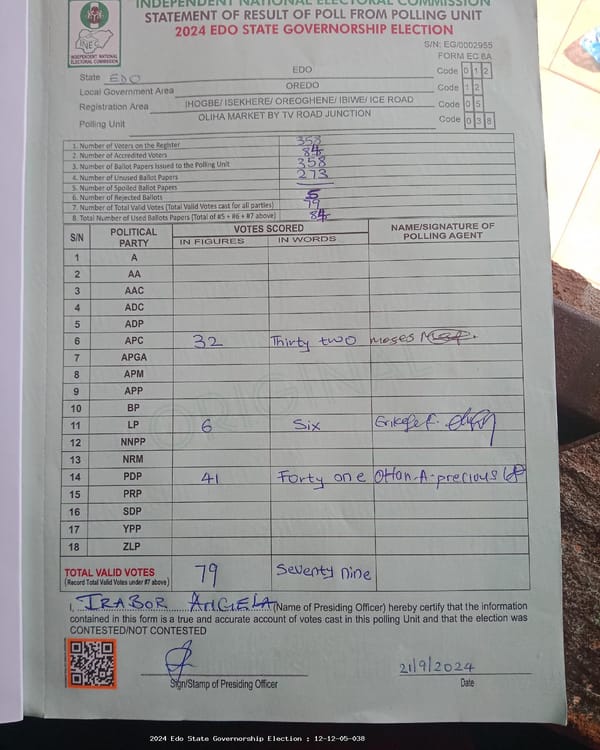 INDEPENDENT NATIONAL ELECTORAL COMMISSION
STATEMENT OF RESULT OF POLL FROM POLLING UNIT
2024 EDO STATE GOVERNORSHIP ELECTION
INEC
INDEPENDENT NATIONAL ELECTORAL COMMISSION
S/N: EG/0002955
FORM EC 8A
State EDO EDO Code 0 1 2
Local Government Area OREDO Code 1 2
Registration Area IHOGBE/ ISEKHERE/ OREOGHENE/ IBIWE/ ICE ROAD Code 0 5
Polling Unit OLIHA MARKET BY TV ROAD JUNCTION Code 0 3 8
1. Number of Voters on the Register 358
2. Number of Accredited Voters 84
3. Number of Ballot Papers Issued to the Polling Unit 358
4. Number of Unused Ballot Papers 273
5. Number of Spoiled Ballot Papers
6. Number of Rejected Ballots 5
7. Number of Total Valid Votes (Total Valid Votes cast for all parties) 79
8. Total Number of Used Ballots Papers (Total of #5 + #6 + #7 above) 84
S/N POLITICAL PARTY VOTES SCORED NAME/SIGNATURE OF POLLING AGENT
IN FIGURES IN WORDS
1 A
2 AA
3 AAC
4 ADC
5 ADP
6 APC 32 Thirty two moses
7 APGA
8 APM
9 APP
10 BP
11 LP 6 Six
12 NNPP
13 NRM
14 PDP 41 Forty one precious
15 PRP
16 SDP
17 YPP
18 ZLP
ORIGINAL
TOTAL VALID VOTES 79 Seventy nine
(Record Total Valid Votes under #7 above)
I, IRABOR ANGELA (Name of Presiding Officer) hereby certify that the information
contained in this form is a true and accurate account of votes cast in this polling Unit and that the election was
CONTESTED/NOT CONTESTED
21/9/2024
Sign/Stamp of Presiding Officer Date
2024 Edo State Governorship Election : 12-12-05-038